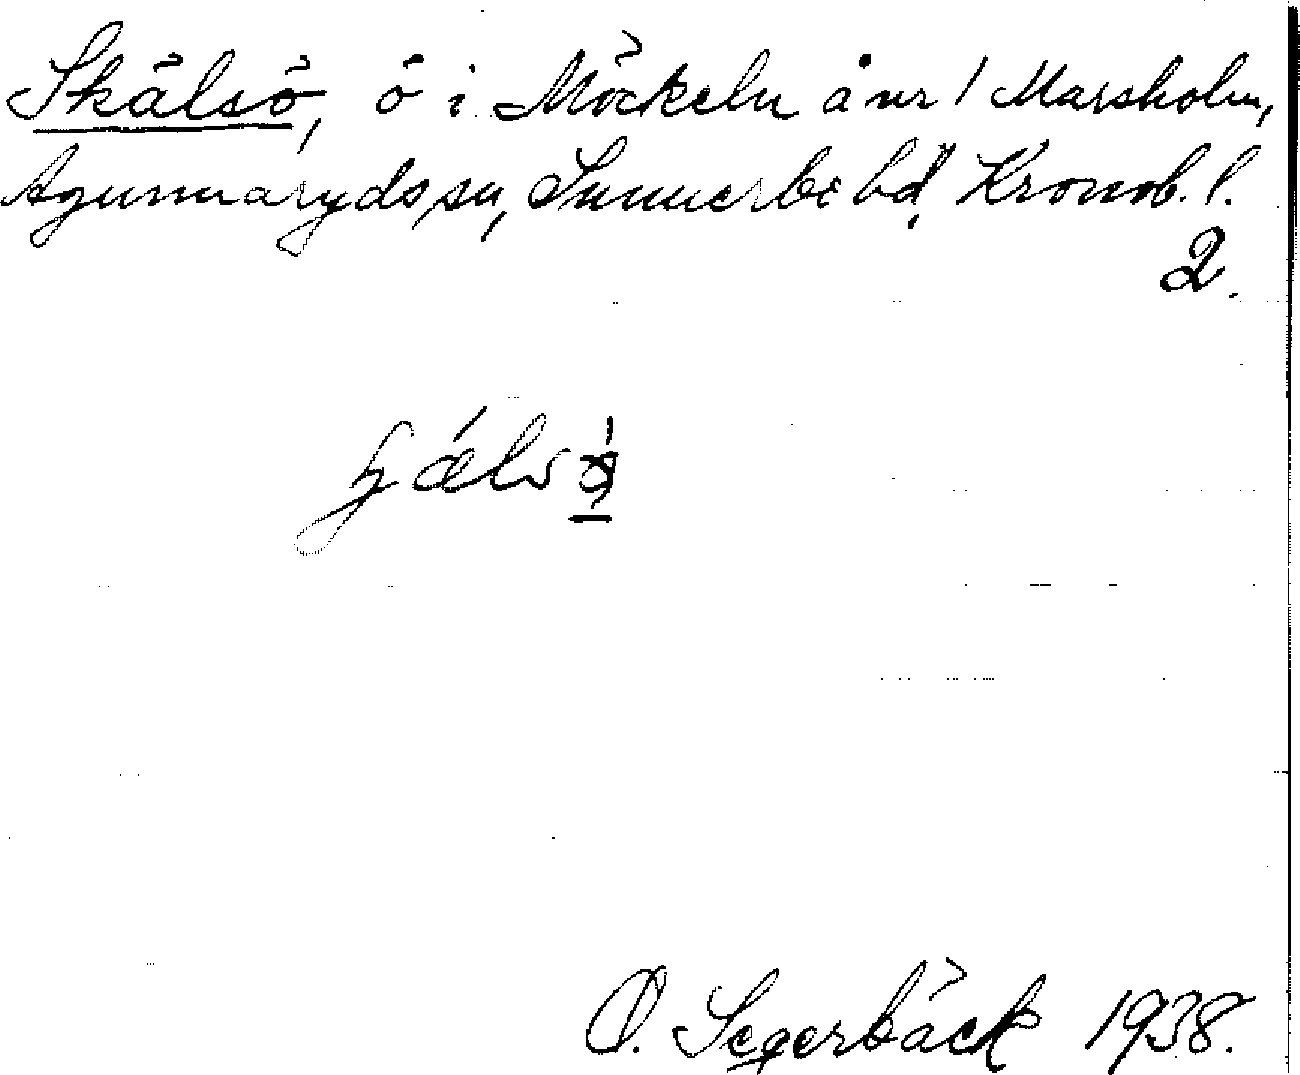 Skälsö, ö i Möckeln å nr 1 Marsholm,
Agunnaryds sn, Sunnerbo hd, Kronob. l.
2.
O. Segerbäck 1938.